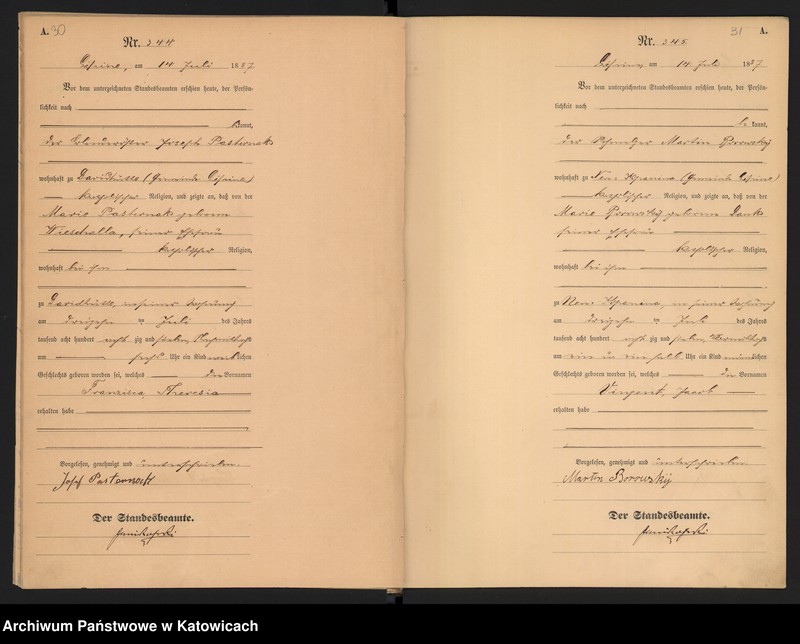 A. 30
Nr. 244
am 14 Juli 1887
Vor dem unterzeichneten Standesbeamten erschien heute, der Persön-
lichkeit nach
kannt,
der Joseph Pasternak
wohnhaft zu Davidhütte (Gemeinde
katholischer Religion, und zeigte an, daß von der
Marie Pasternak geborene
Wieschalla, seiner Ehefrau
katholischer Religion,
wohnhaft bei ihm
zu Davidhütte, in seiner Wohnung
am dreizehn ten Juli des Jahres
tausend acht hundert acht zig und sieben, Nachmittags
um sechs Uhr ein Kind weiblichen
Geschlechts geboren worden sei, welches die Vornamen
Franzisca, Theresia
erhalten habe
Vorgelesen, genehmigt und unterschrieben
Josef Pasternack
Der Standesbeamte.
31 A.
Nr. 245
am 14 Juli 1887
Vor dem unterzeichneten Standesbeamten erschien heute, der Persön-
lichkeit nach
be kannt,
der Schmelzer Martin Borowsky
wohnhaft zu Neu- (Gemeinde
katholischer Religion, und zeigte an, daß von der
Marie Borowsky geborene
seiner Ehefrau
katholischer Religion,
wohnhaft bei ihm
zu Neu- in seiner Wohnung
am dreizehn ten Juli des Jahres
tausend acht hundert acht zig und sieben, Vormittags
um ein ein halb Uhr ein Kind männlichen
Geschlechts geboren worden sei, welches die Vornamen
Vinzent, Jacob
erhalten habe
Vorgelesen, genehmigt und unterschrieben
Martin Borowskÿ
Der Standesbeamte.
Archiwum Państwowe w Katowicach